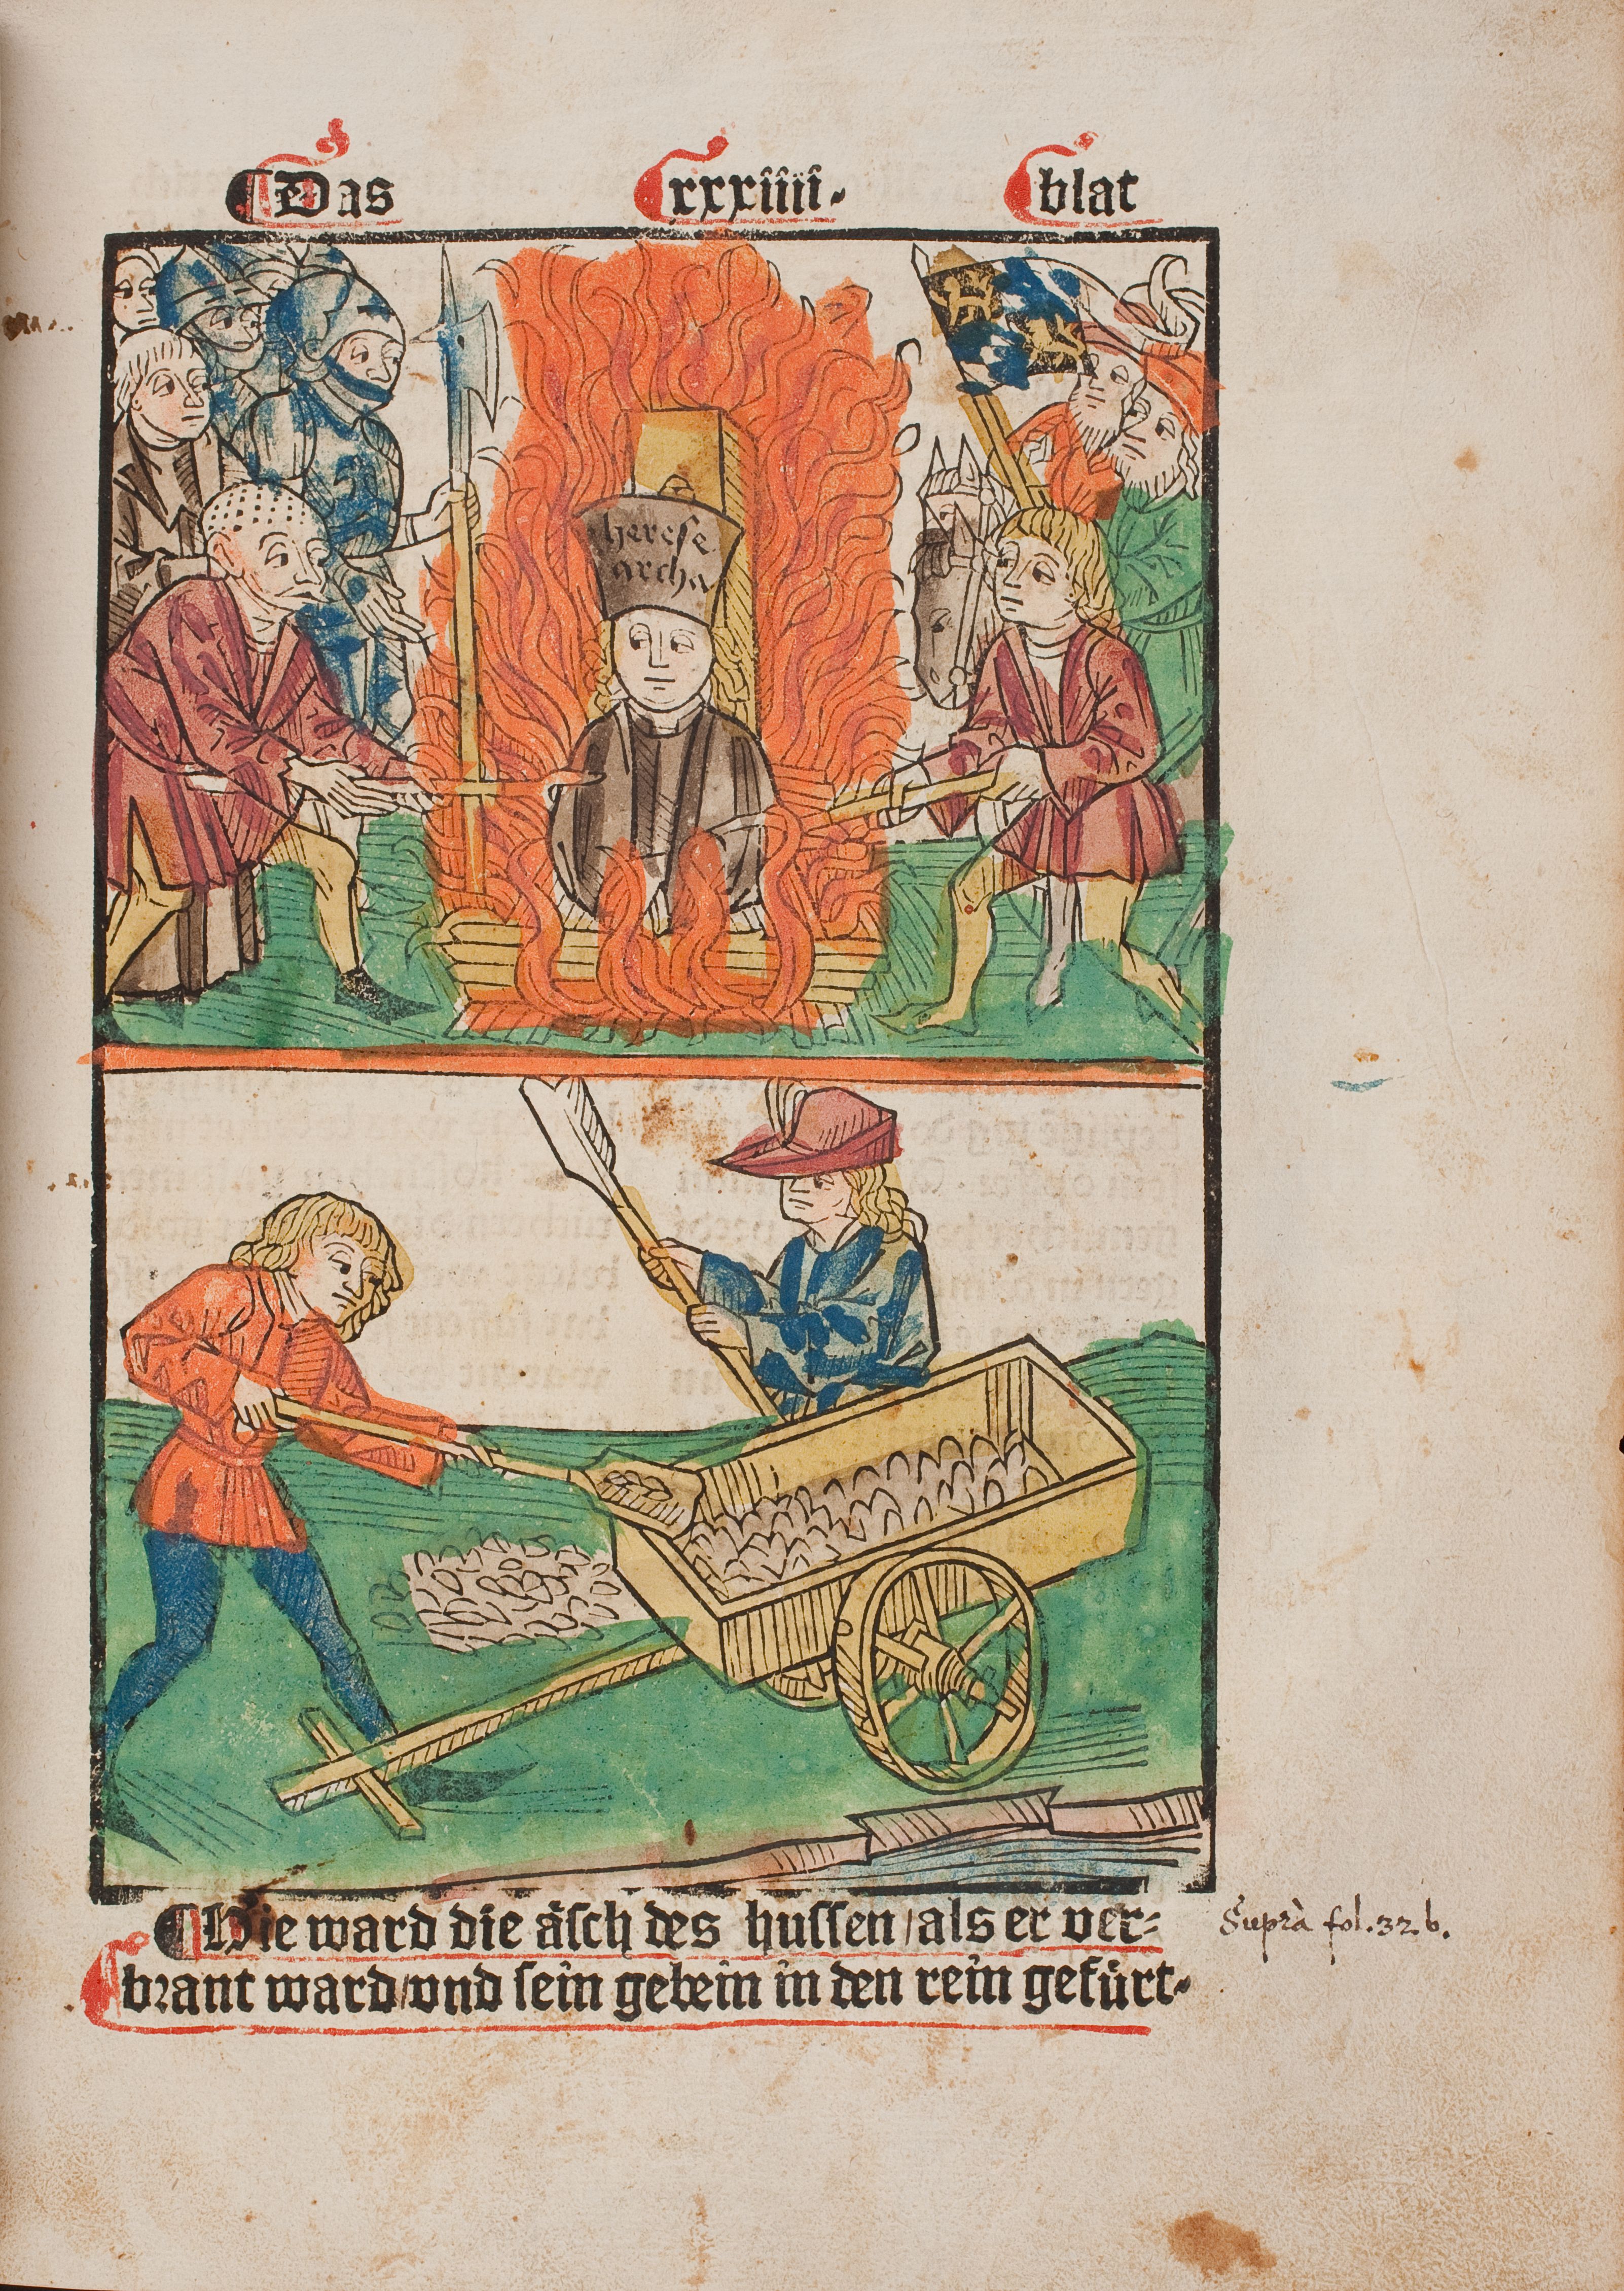 Das xxxiiii. blat
herese
archa
Hie ward die äsch des hussen / als er ver=
brant ward / vnd sein gebein in den rein gefürt.
Suprà fol. 32 b.